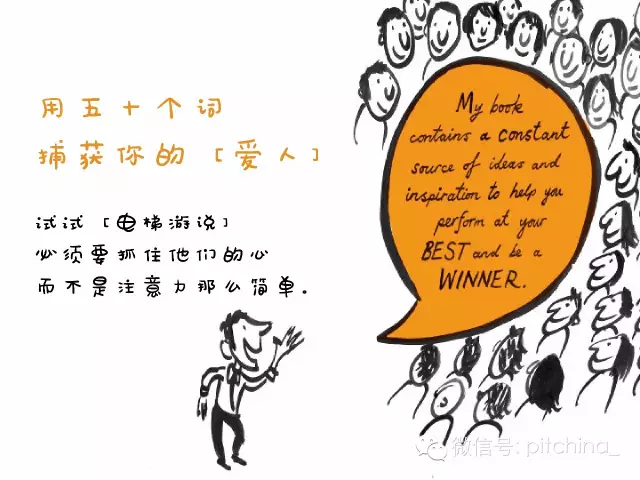 用五十个词
捕获你的［爱人］
试试［电梯游说］
必须要抓住他们的心
而不是注意力那么简单.
My book
contains a constant
source of ideas and
inspiration to help you
perform at your
BEST and be a
WINNER.
微信号: pitchina_